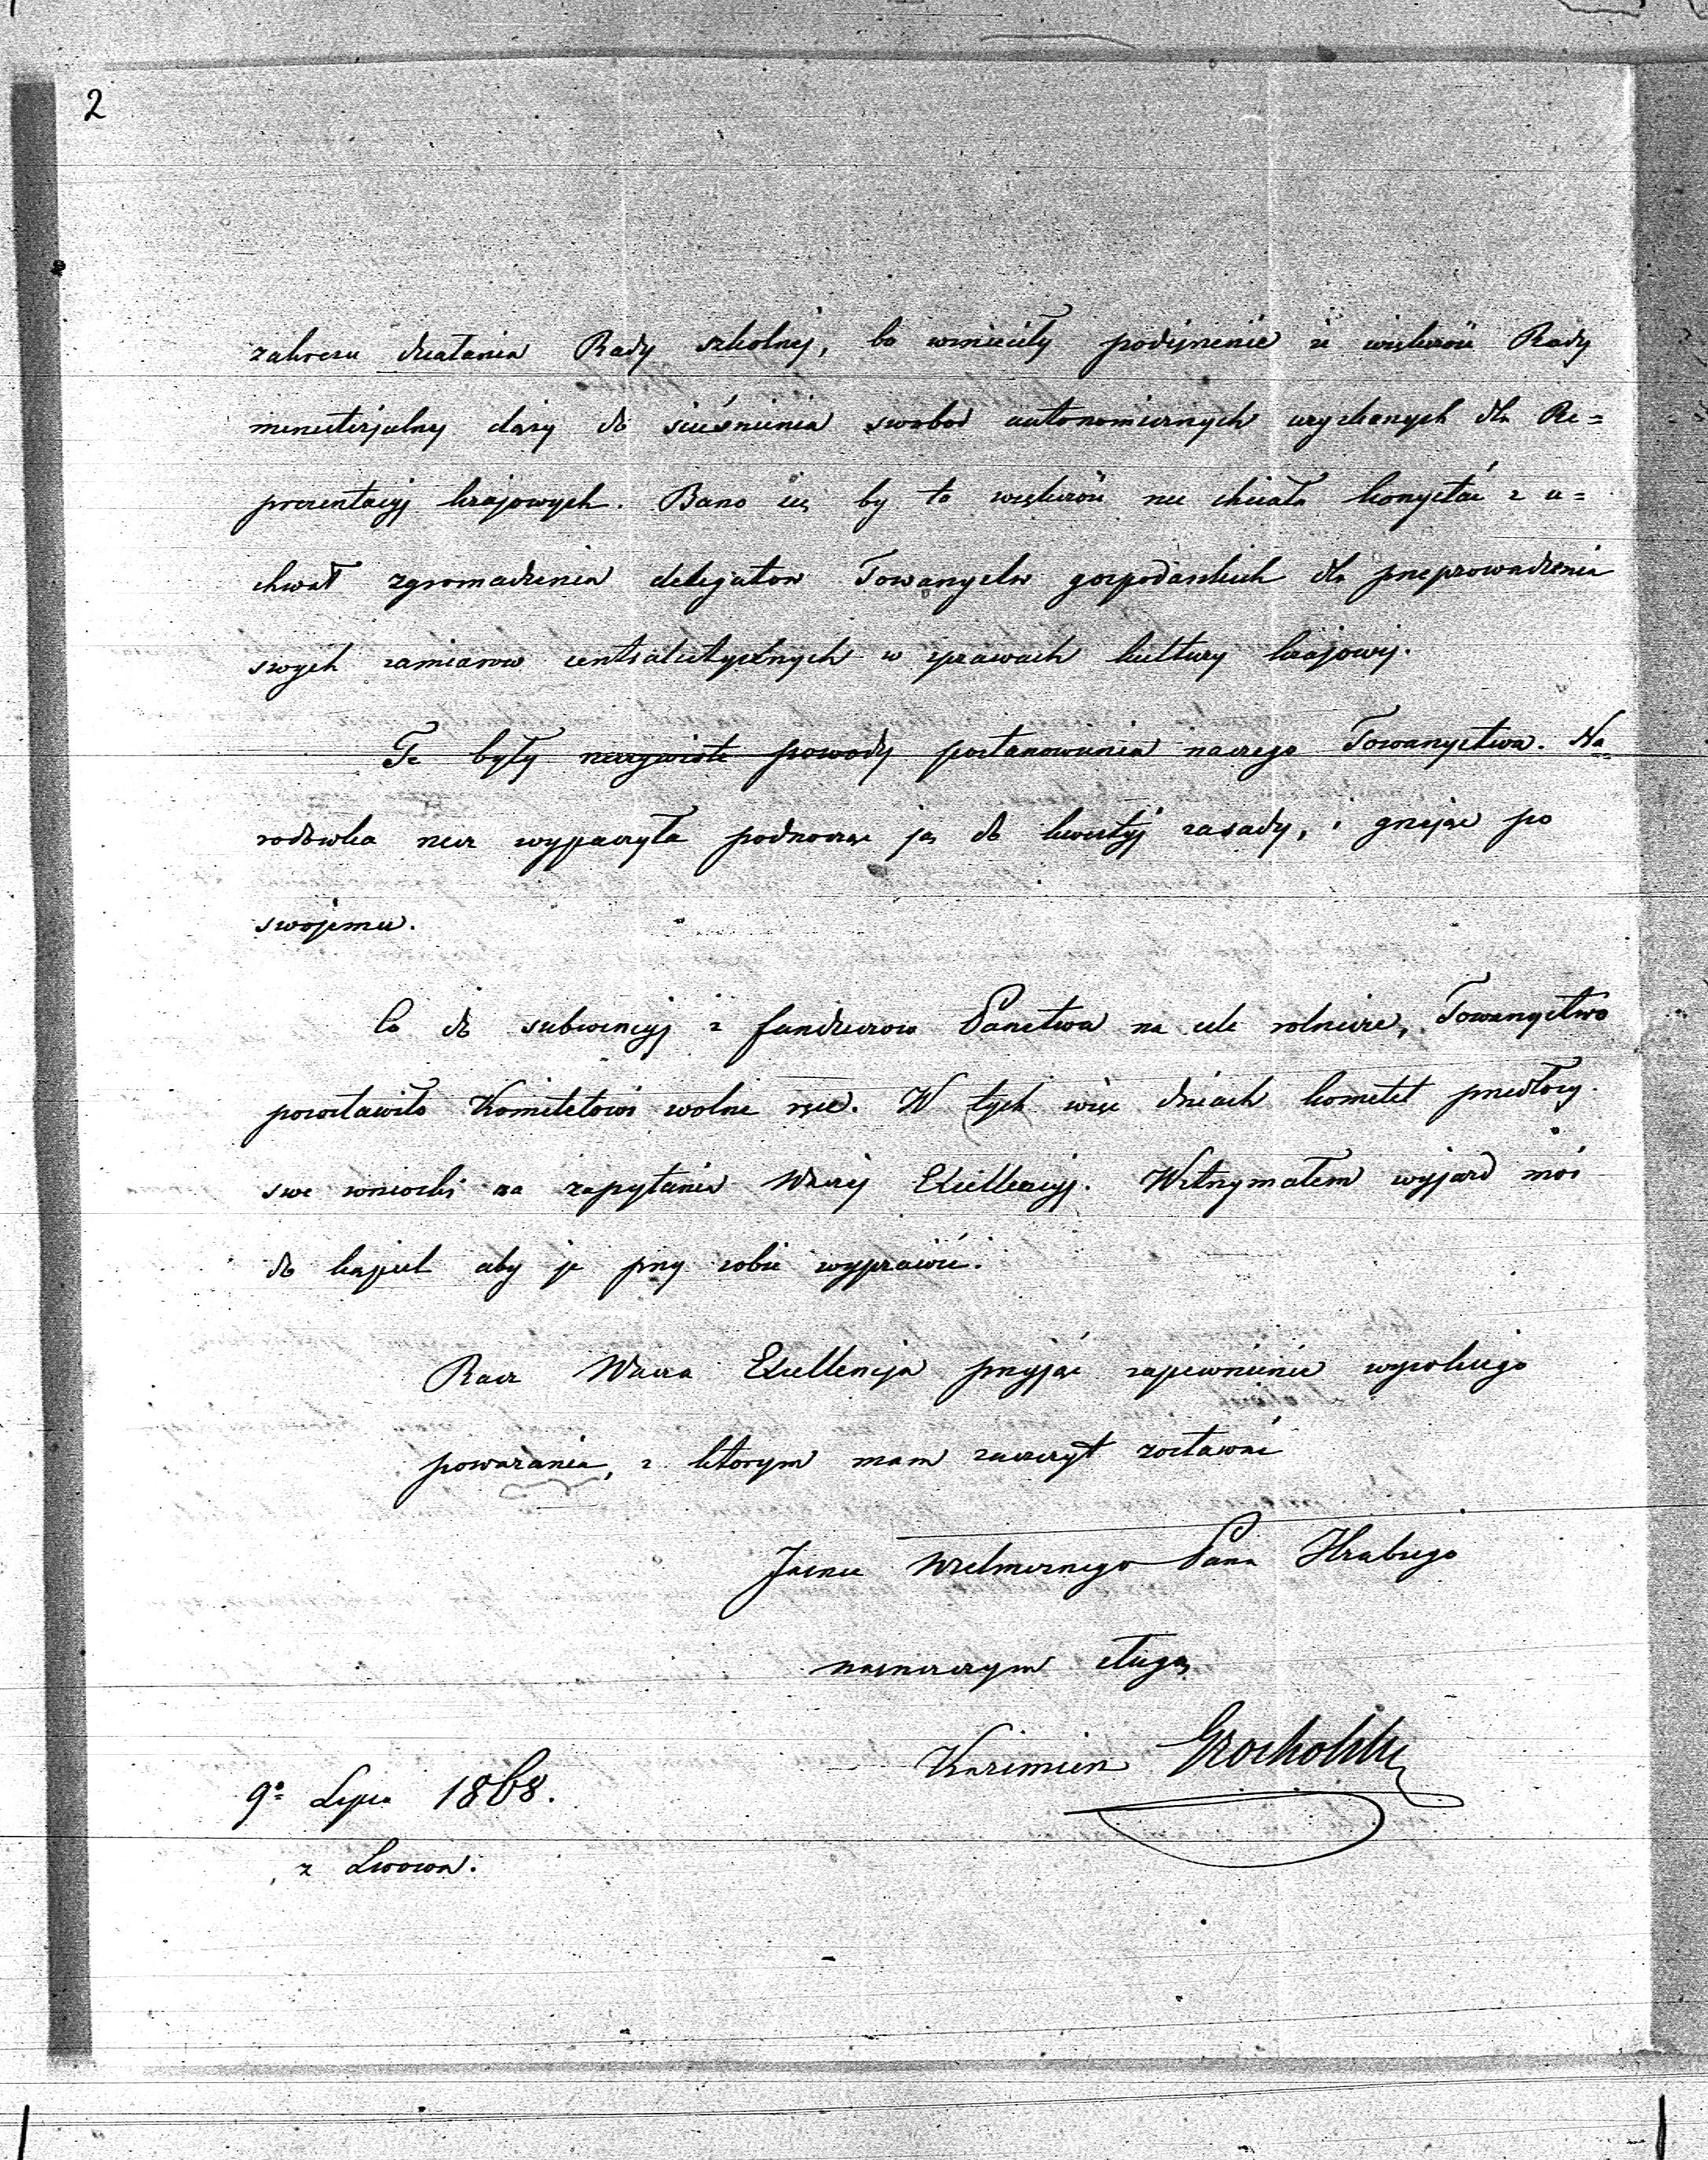 2
zakresu działania Rady szkolnej, bo wznieciły podejrzenie iż większość Rady
ministerjalnej dąży do ścieśnienia swobod autonomicznych uzyskanych dla Re=
prezentacyj krajowych. Bano się by ta większość nie chciała korzystać z u=
chwał zgromadzenia delegatow Towarzystw gospodarskich dla przeprowadzenia
swych zamiarow centralistycznych w sprawach kultury krajowej.
Te były rzeczywiste powody postanowienia naszego Towarzystwa. Na=
rodowka rzecz wypaczyła podnosząc ją do kwestyj zasady, i grzejąc po
swojemu.
Co do subwencyj z funduszow Państwa na cele rolnicze, Towarzystwo
pozostawiło Komitetowi wolne ręce. W tych więc dniach komitet przedłoży
swe wnioski na zapytania Waszej Excellencyj. Wstrzymałem wyjazd mój
do kąpiel aby je przy sobie wyprawić.
Racz Wasza Excellencja przyjąć zapewnienie wysokiego
poważania, z ktorym mam zaszczyt zostawać
Jaśnie Wielmożnego Pana Hrabiego
najniższym sługą
Kazimierz Grocholski
9º Lipca 1868.
z Lwowa.